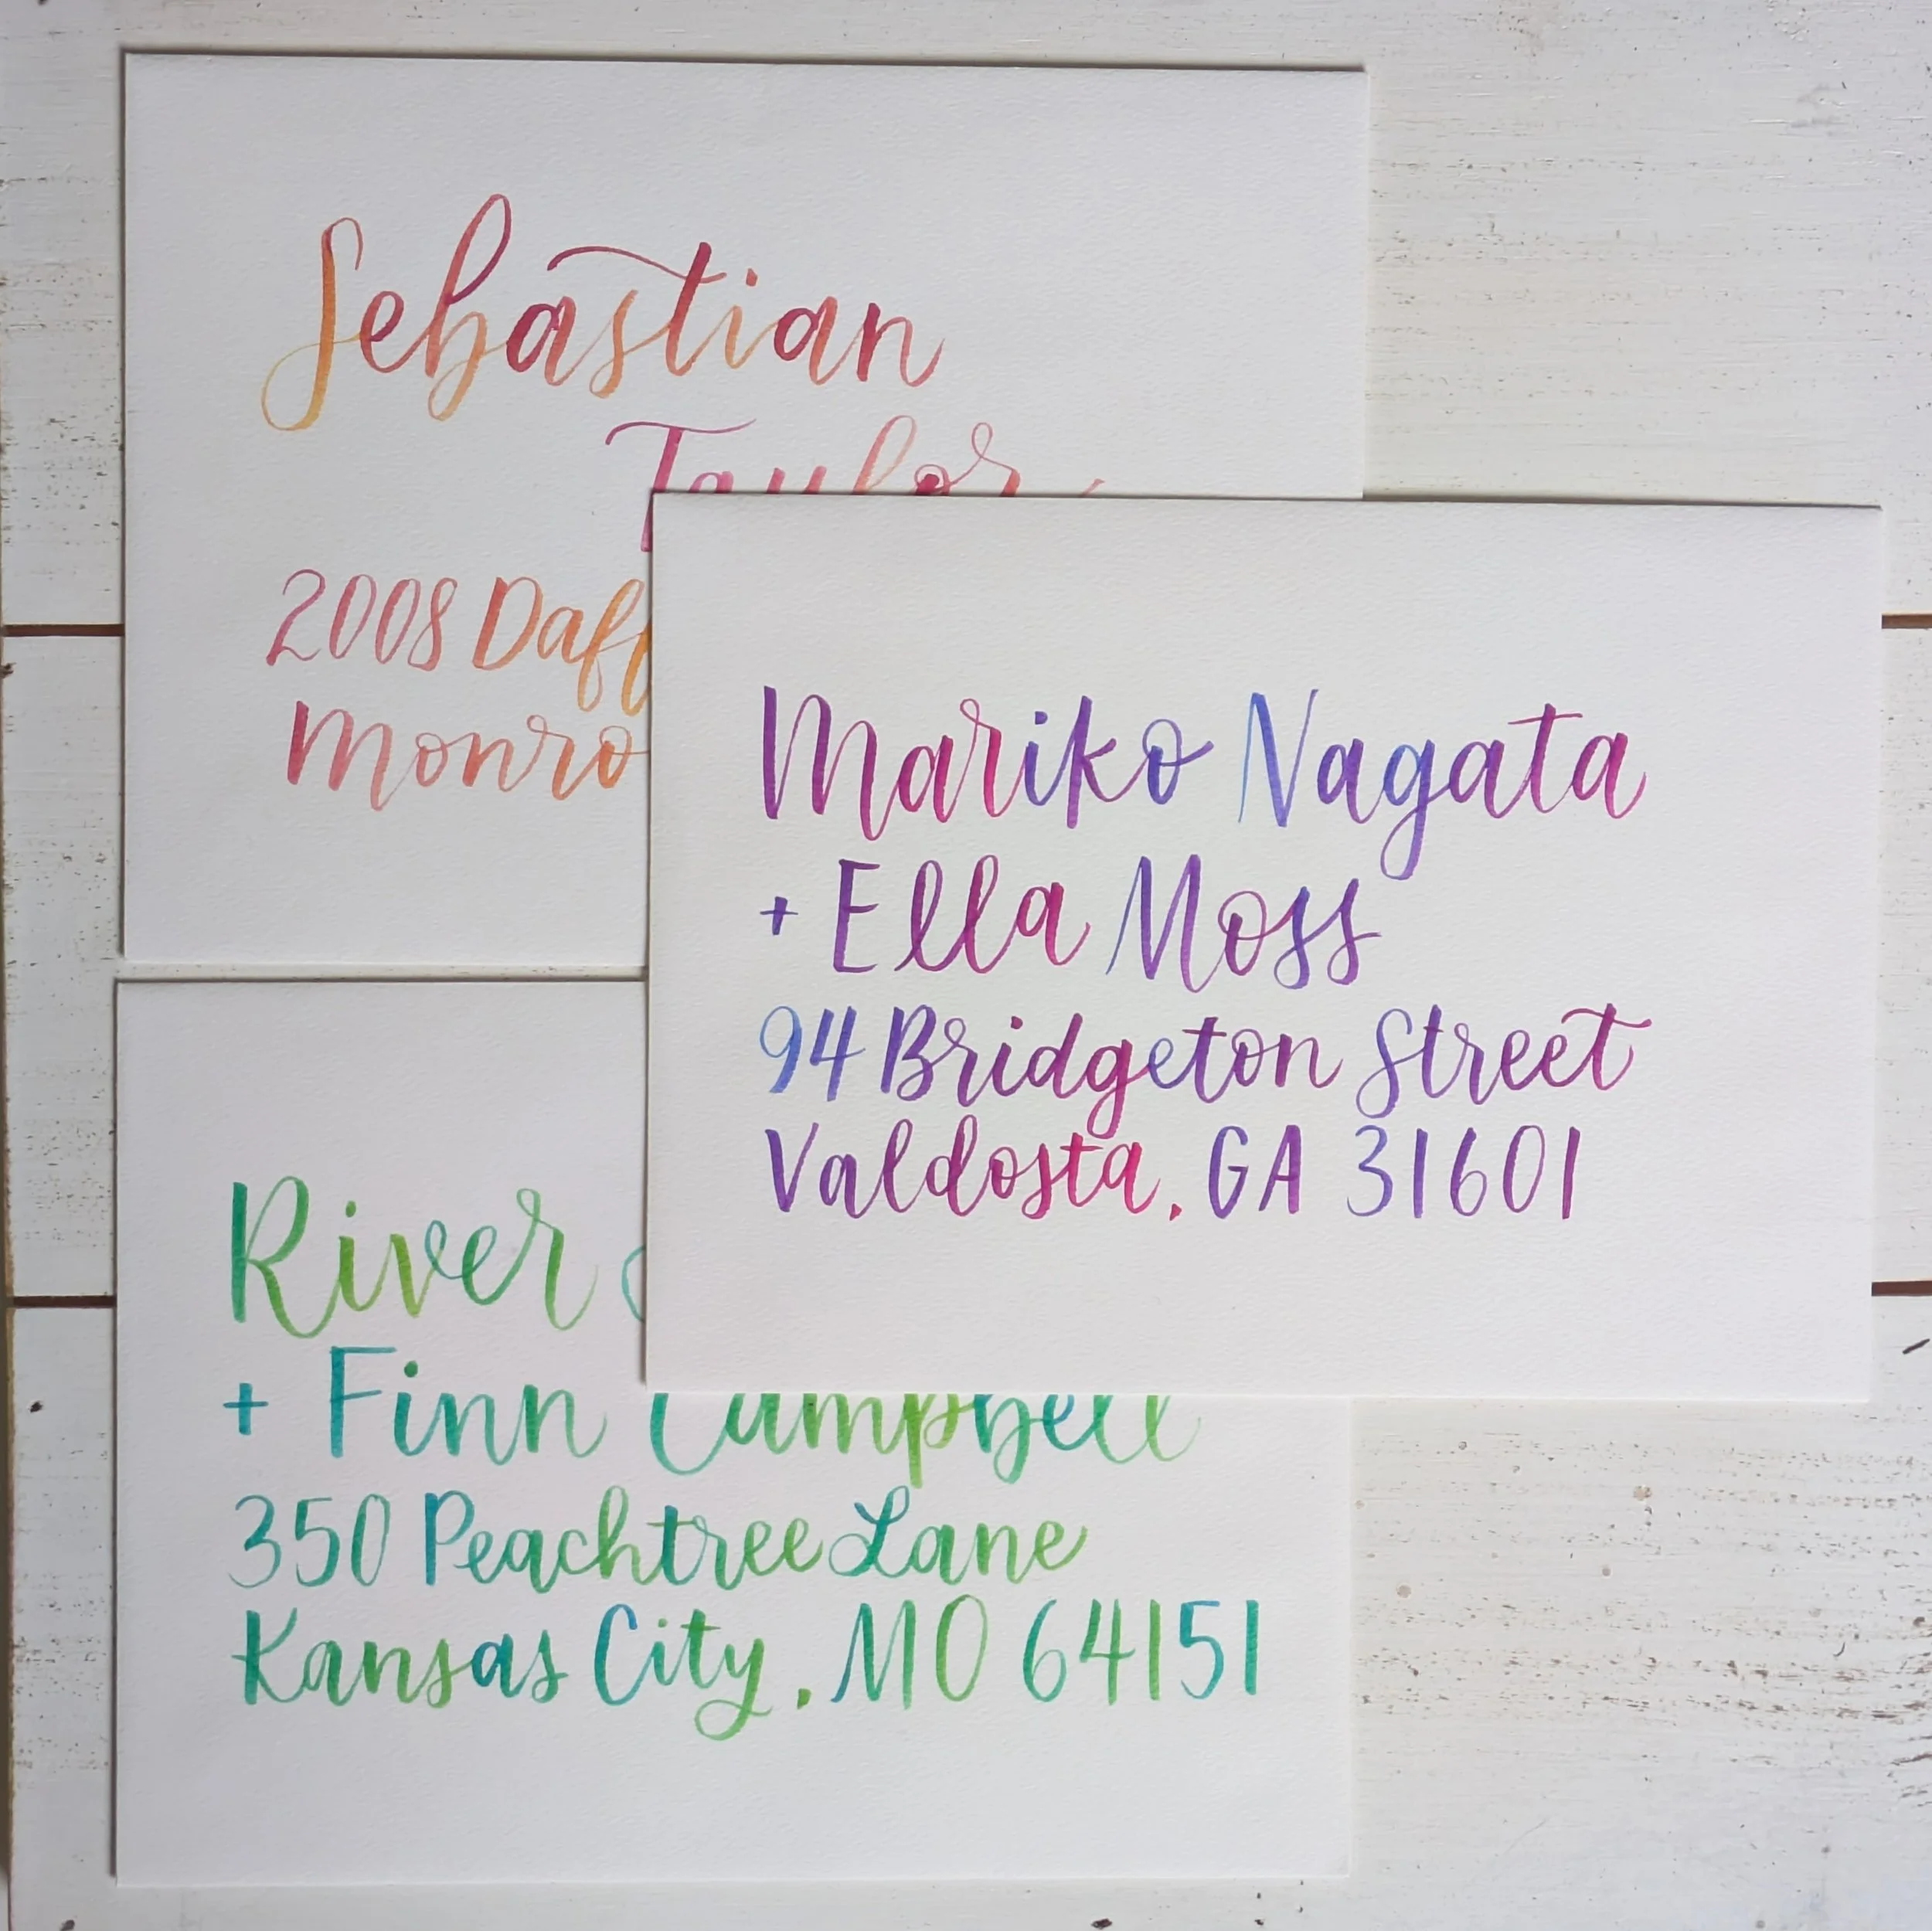 Sebastian
Taylor
2008
Mariko Nagata
+ Ella Moss
94 Bridgeton Street
Valdosta, GA 31601
River
+ Finn Campbell
350 Peachtree Lane
Kansas City, MO 64151